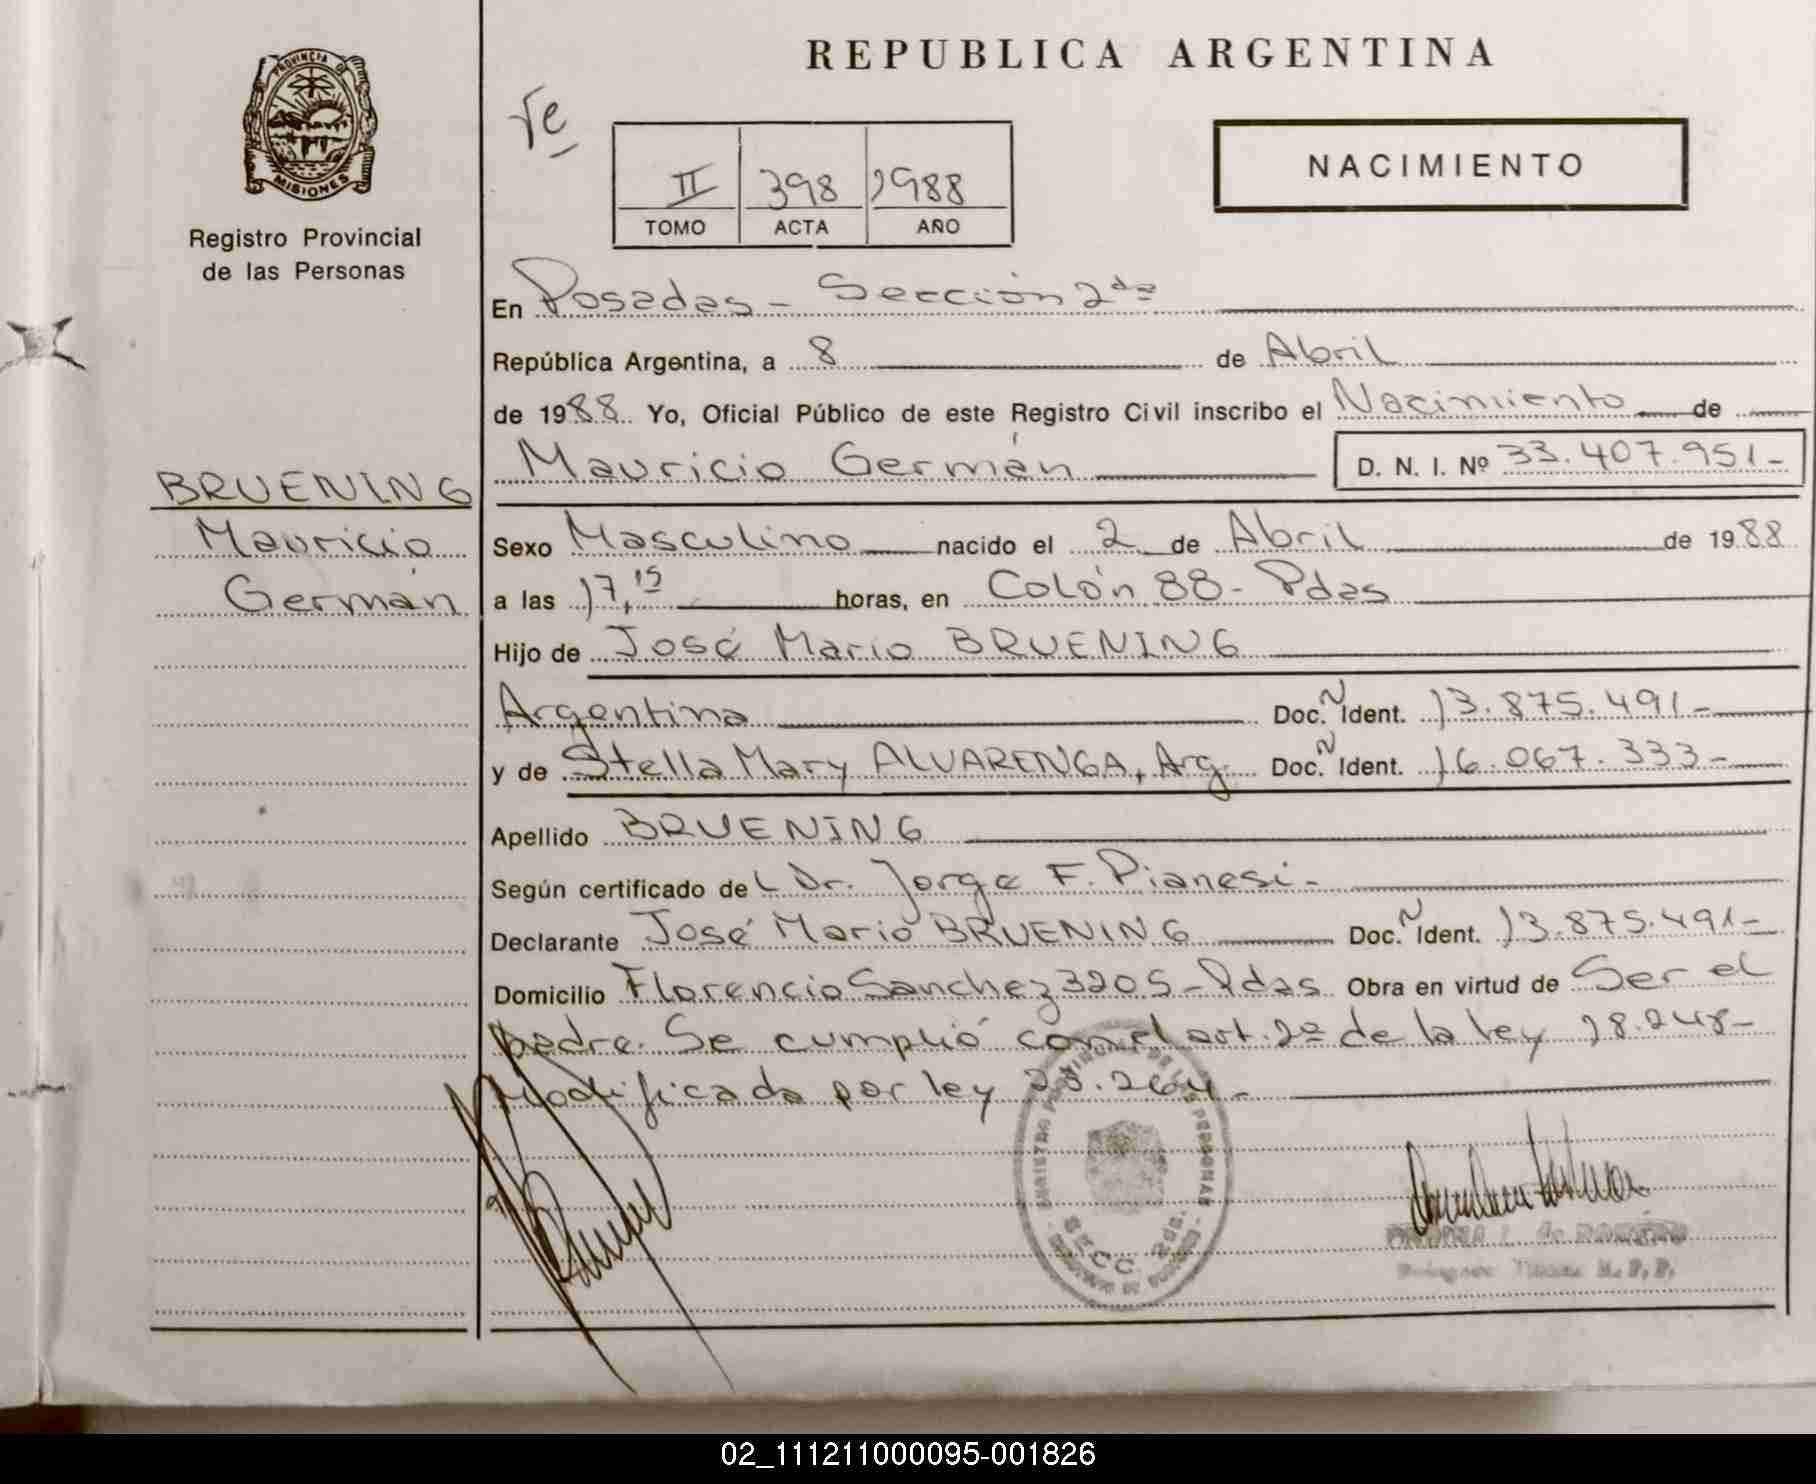 PROVINCIA DE
MISIONES
Registro Provincial
de las Personas
REPUBLICA ARGENTINA
NACIMIENTO
II 398 1988
TOMO ACTA AÑO
En Posadas - Sección 2da
República Argentina, a 8 de Abril
de 1988 Yo, Oficial Público de este Registro Civil inscribo el Nacimiento de
Mauricio Germán D. N. I. Nº 33.407.951-
BRUENING
Mauricio
Germán
Sexo Masculino nacido el 2 de Abril de 1988
a las 17,15 horas, en Colón 88 - Pdas
Hijo de José Mario BRUENING
Argentina Doc. N Ident. 13.875.491-
y de Stella Mary ALVARENGA, Arg. Doc. N Ident. 16.067.333-
Apellido BRUENING
Según certificado de L Dr. Jorge F. Pianesi-
Declarante José Mario BRUENING Doc. N Ident. 13.875.491-
Domicilio Florencio Sanchez 3205 - Pdas Obra en virtud de Ser el
padre. Se cumplió con el art. 2º de la ley 18.248-
Modificada por ley 23.264-
SECC 2da.
02_111211000095-001826